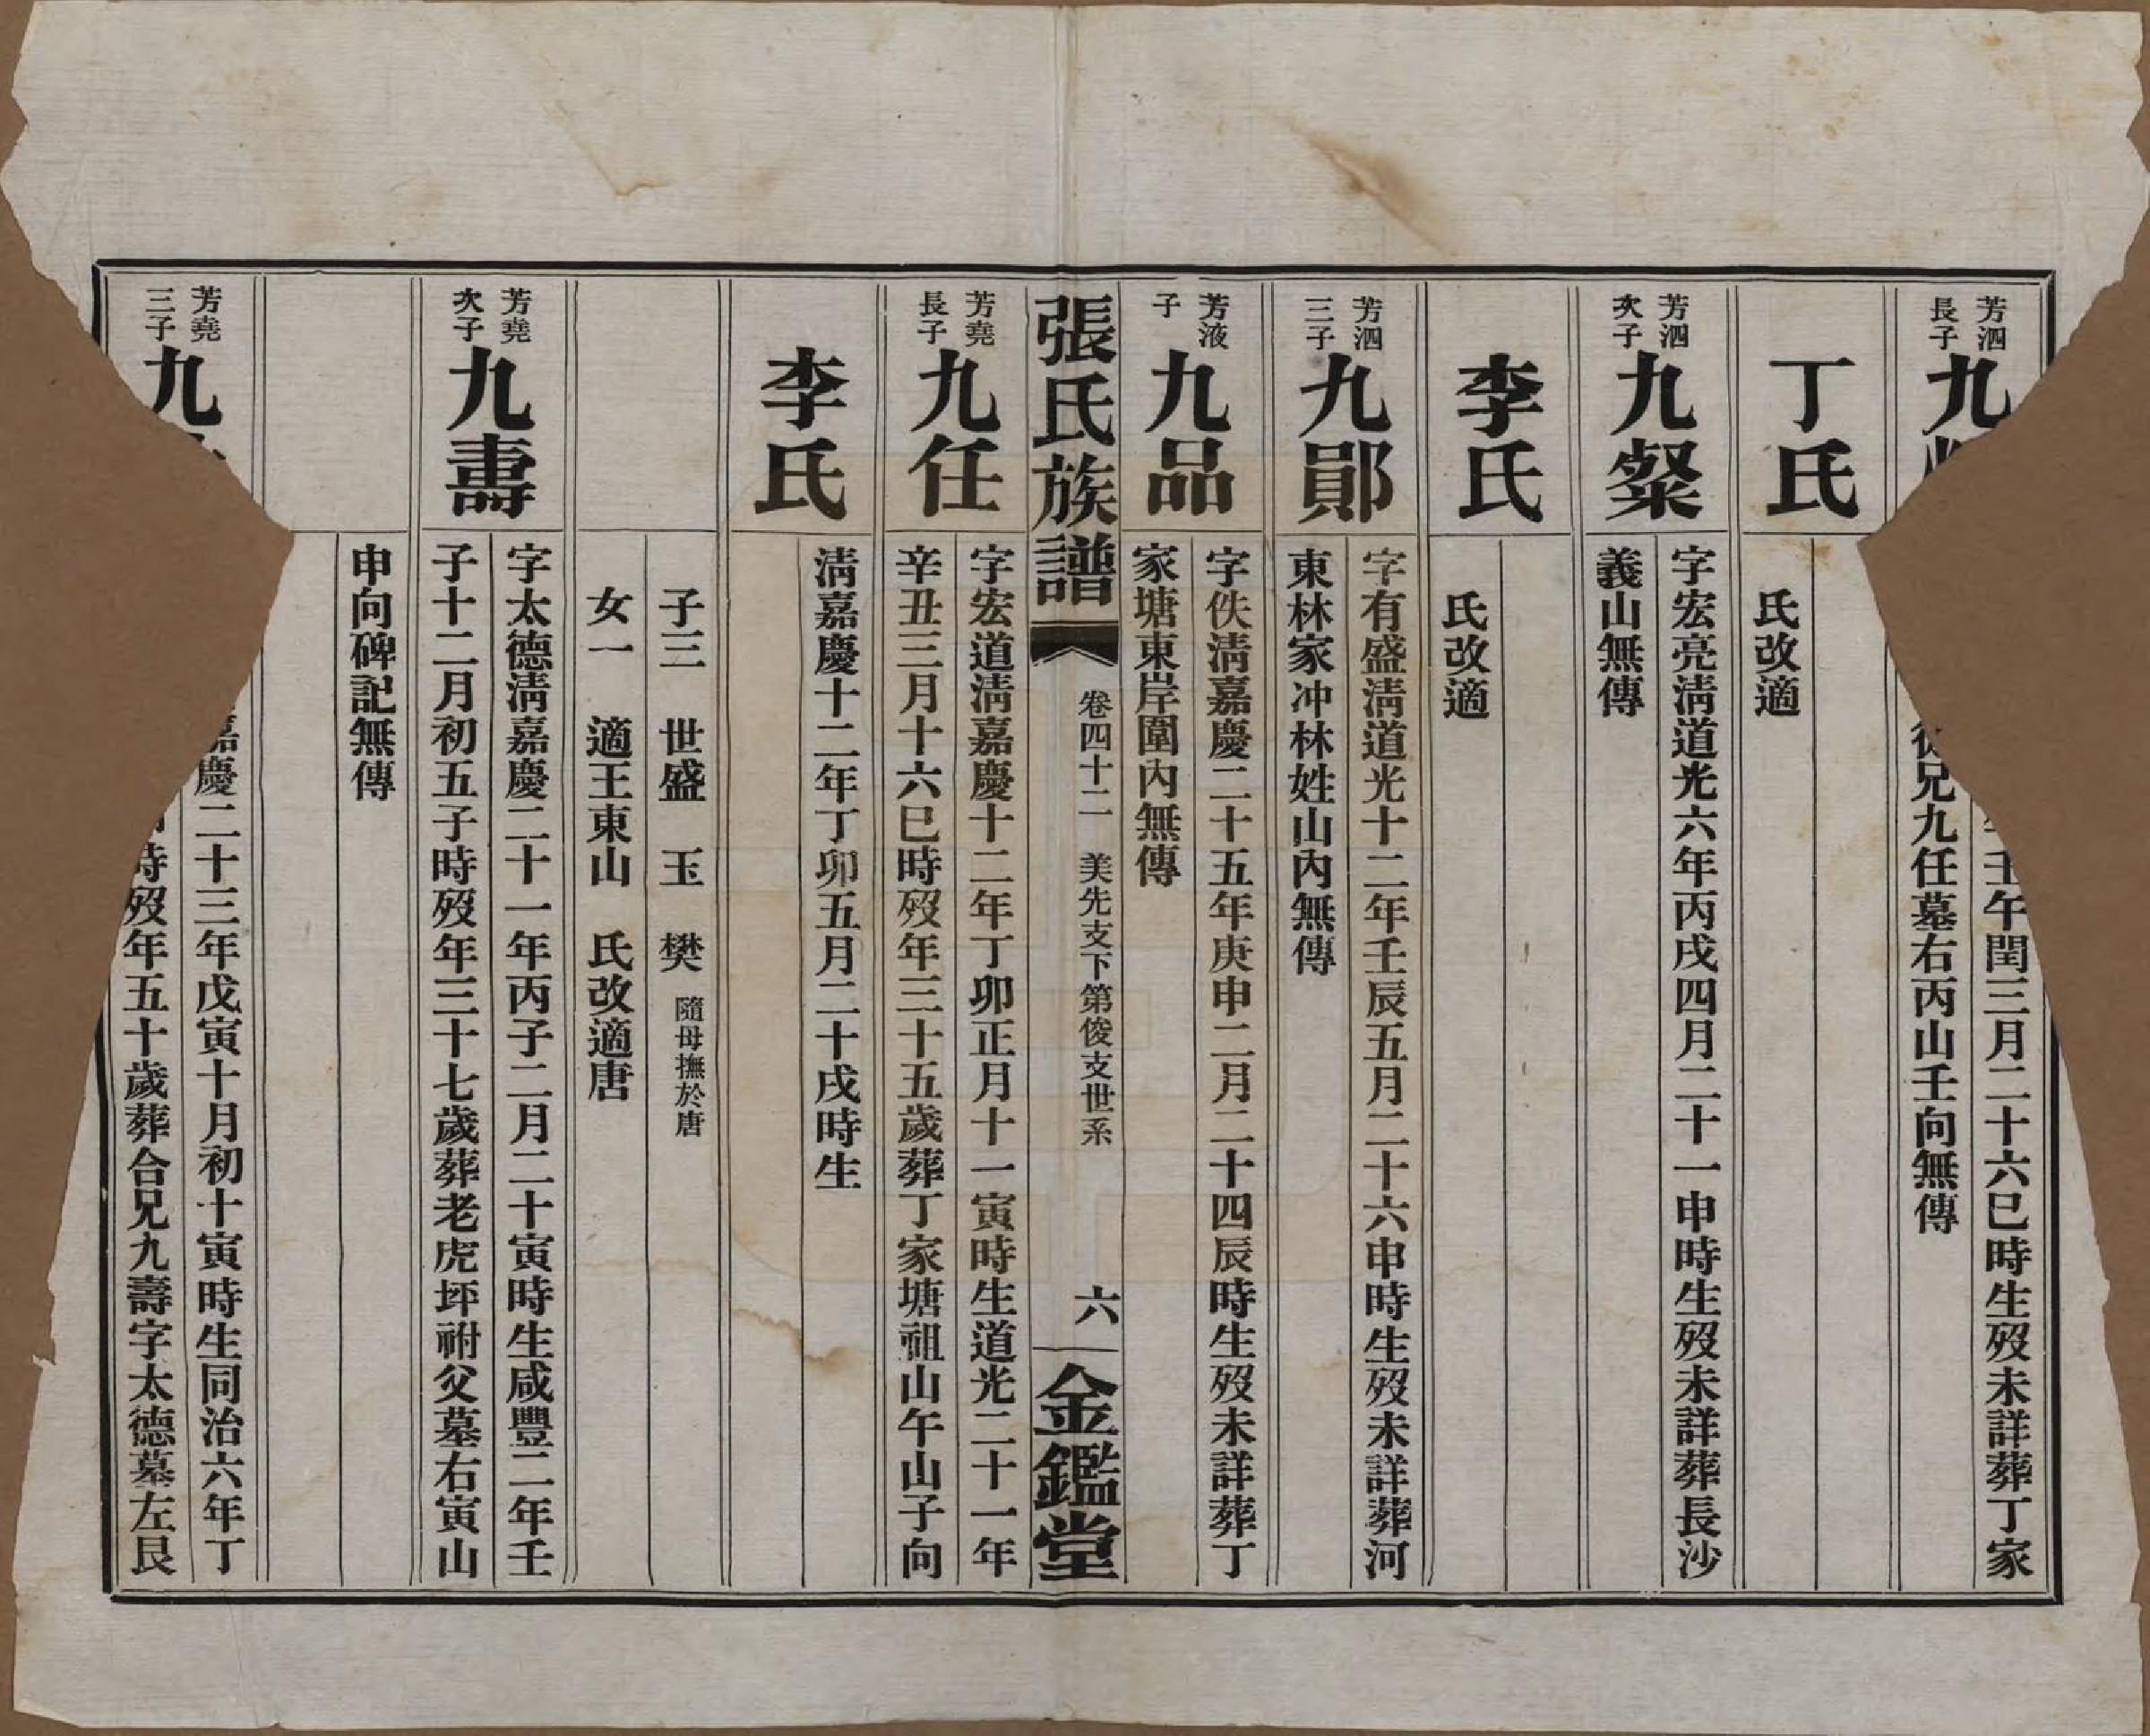 芳泗
長子
九
午閏三月二十六巳時生歿未詳葬丁家
兄九任墓右丙山壬向無傳
丁氏
氏改適
芳泗
次子
九粲
字宏亮淸道光六年丙戌四月二十一申時生歿未詳葬長沙
義山無傳
李氏
氏改適
芳泗
三子
九鄖
字有盛淸道光十二年壬辰五月二十六申時生歿未詳葬河
東林家冲林姓山內無傳
芳液
子
九品
字佚淸嘉慶二十五年庚申二月二十四辰時生歿未詳葬丁
家塘東岸圍內無傳
張氏族譜
卷四十二 美先支下第俊支世系
六
金鑑堂
芳堯
長子
九任
字宏道淸嘉慶十二年丁卯正月十一寅時生道光二十一年
辛丑三月十六巳時歿年三十五歲葬丁家塘祖山午山子向
李氏
淸嘉慶十二年丁卯五月二十戌時生
子三 世盛 玉 樊 隨母撫於唐
女一 適王東山 氏改適唐
芳堯
次子
九壽
字太德淸嘉慶二十一年丙子二月二十寅時生咸豐二年壬
子十二月初五子時歿年三十七歲葬老虎坪祔父墓右寅山
申向碑記無傳
芳堯
三子
九
嘉慶二十三年戊寅十月初十寅時生同治六年丁
時歿年五十歲葬合兄九壽字太德墓左艮